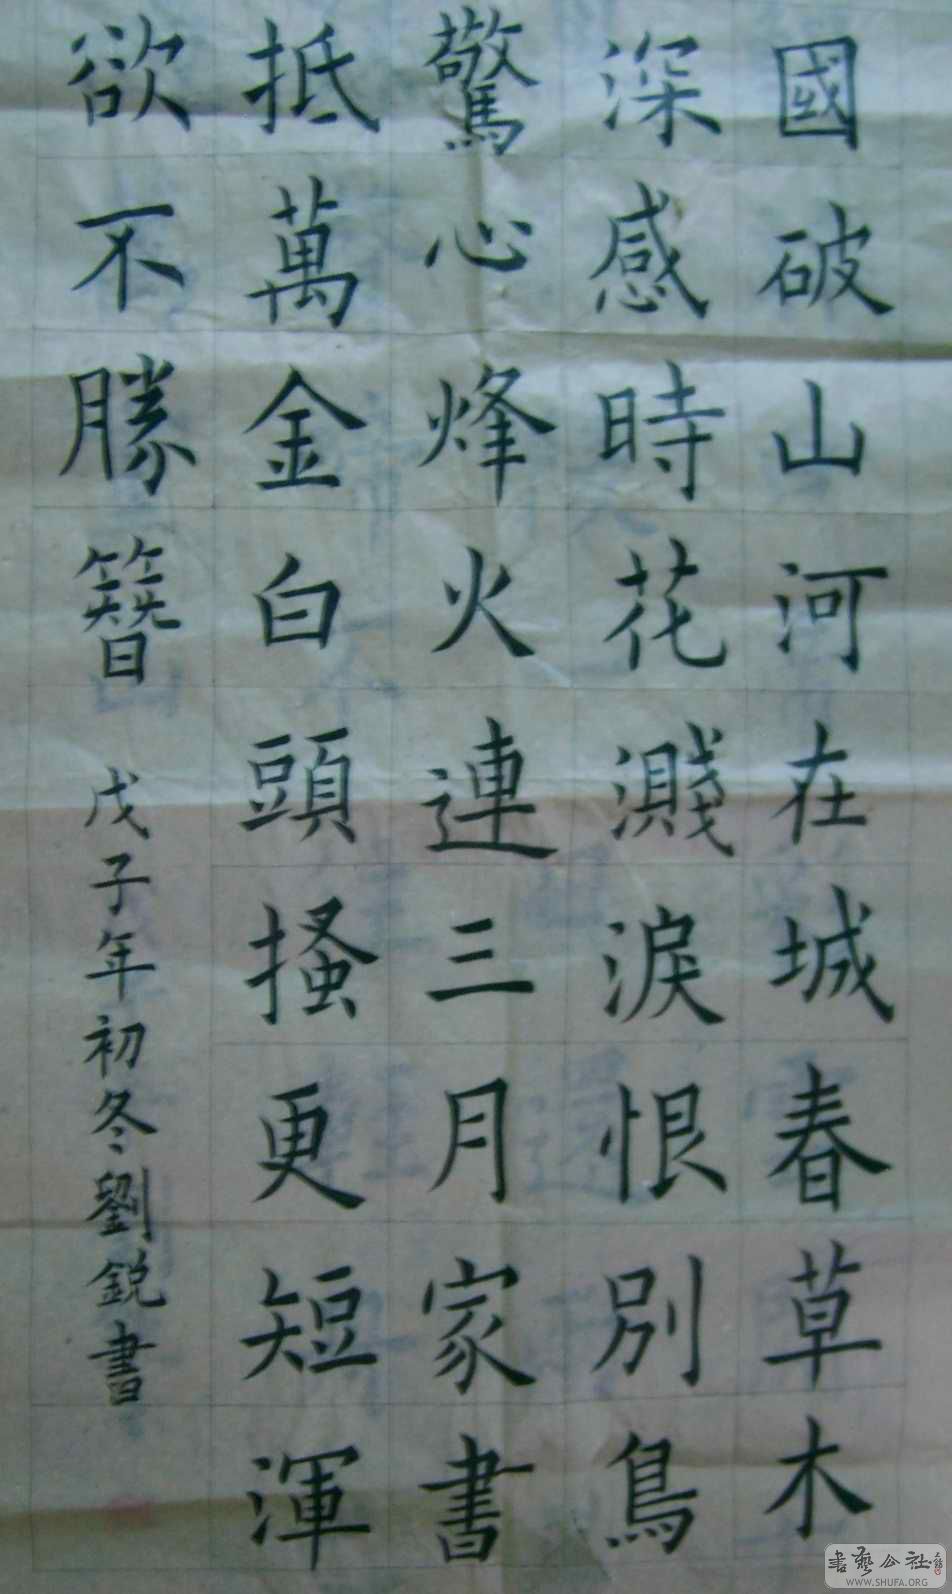 國破山河在城春草木
深感時花濺淚恨別鳥
驚心烽火連三月家書
抵萬金白頭搔更短渾
欲不勝簪
戊子年初冬劉鋭書
書藝公社
WWW.SHUFA.ORG